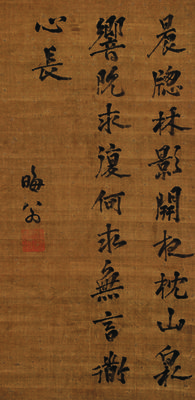 晨牕林影開夜枕山泉
響既求復何求無言衜
心長
晦翁